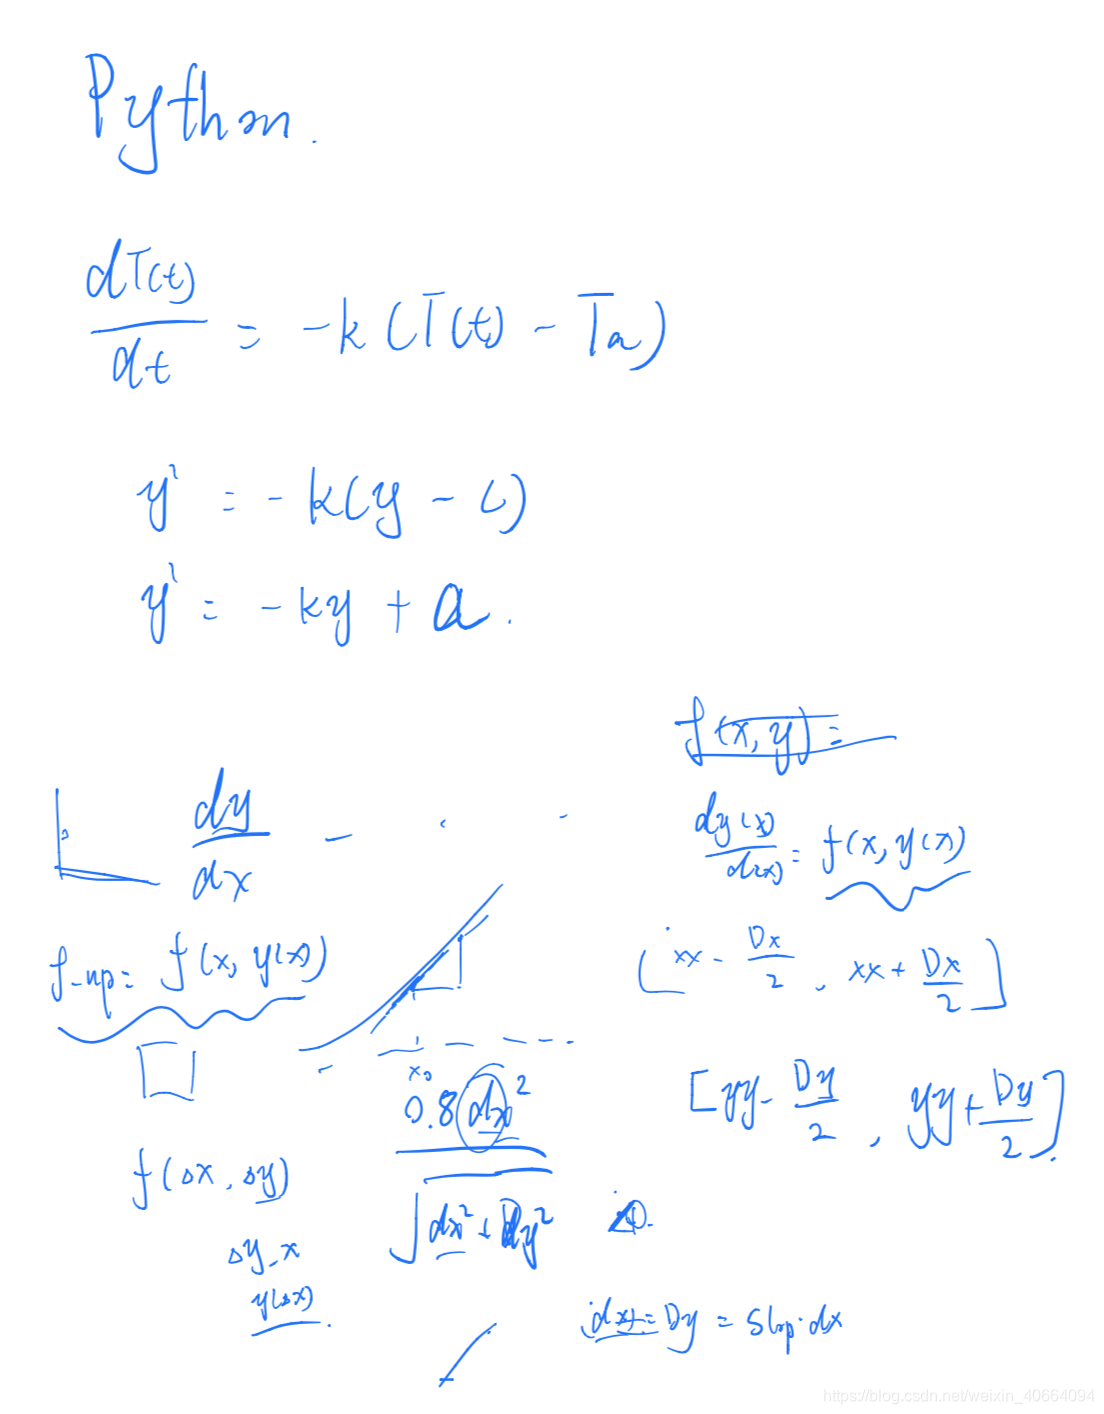 Python.
dT(t)/dt = -k(T(t) - Ta)
y' = -k(y - c)
y' = -ky + a.
f(x, y) =
dy/dx
dy(x)/d(x) = f(x, y(x))
f_up = f(x, y(x))
[xx - Dx/2, xx + Dx/2]
x0
0.8 dx²
√dx² + Dy²
[yy - Dy/2, yy + Dy/2].
f(△x, △y)
△y_x
y(△x).
Dy = slop·dx
https://blog.csdn.net/weixin_40664094